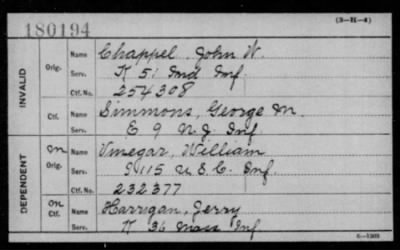 180194
(3-H-4)
INVALID
Orig.
Name Chappel, John W.
Serv. K 51 Ind Inf.
Ctf. No. 254308
Ctf.
Name Simmons, George M.
Serv. E 9 N.J. Inf
DEPENDENT
on Orig.
Name Vinegar, William
Serv. G 115 U.S.C. Inf.
Ctf. No. 232377
on Ctf.
Name Harrigan, Jerry
K 36 Mass Inf